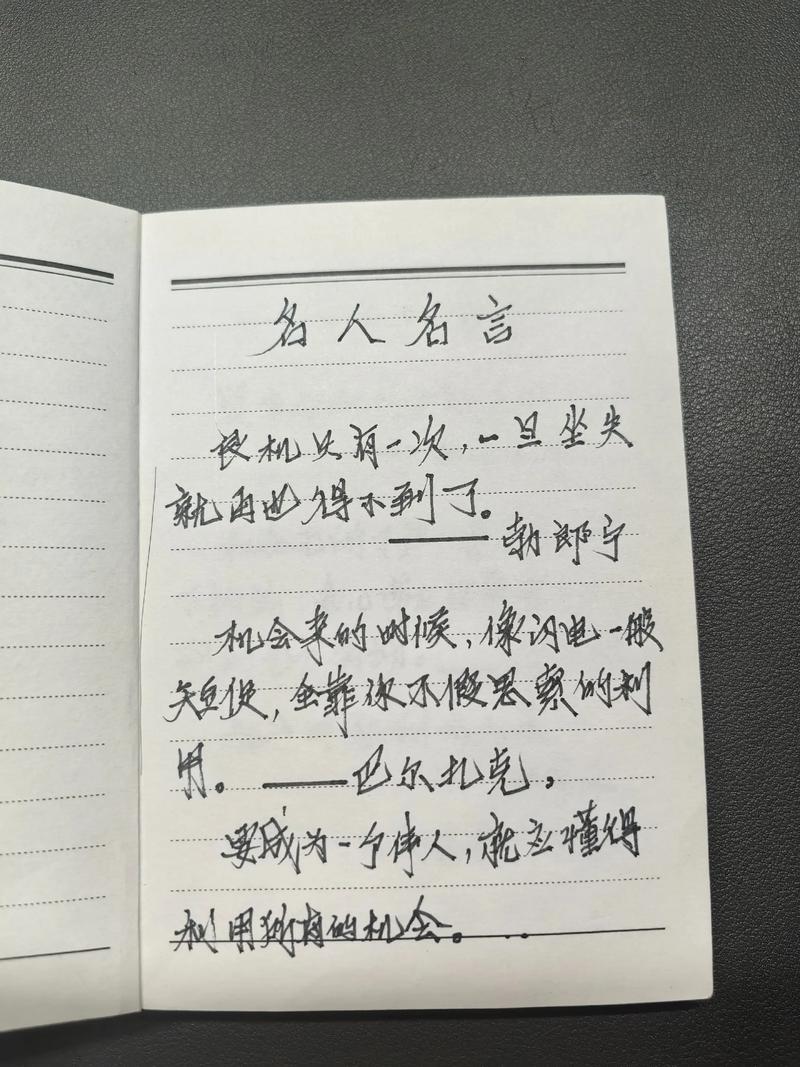 名人名言
良机只有一次，一旦坐失
就再也得不到了。
——勃郎宁
机会来的时候，像闪电一般
短促，全靠你不假思索的利
用。——巴尔扎克，
要成为一个伟人，就应懂得
利用所有的机会。..